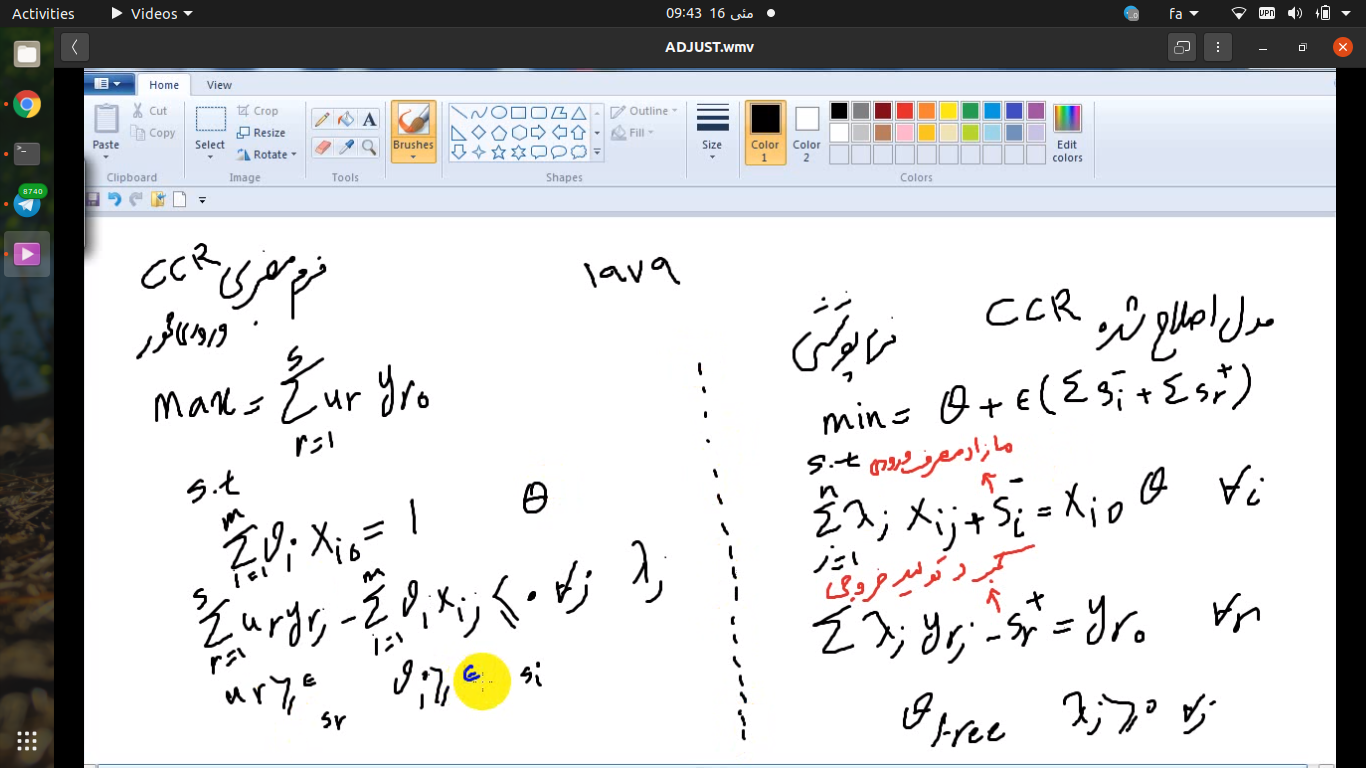 Activities Videos 09:43 16 مئی fa
ADJUST.wmv
8740
Home View
Paste Cut Copy Clipboard
Select Crop Resize Rotate Image
Tools
Brushes
Outline Fill Shapes
Size
Color 1 Color 2 Edit colors Colors
فرم مضربی CCR
ورودی محور
۱۹۷۹
Max = Σ_{r=1}^{s} ur yro
s.t
Σ_{i=1}^{m} vi xio = 1 θ
Σ_{r=1}^{s} ur yrj - Σ_{i=1}^{m} vi xij ≤ ۰ ∀j λj
ur ≥ ε sr vi ≥ ε si
مدل اصلاح شده CCR
فرم پوششی
min = θ + ε(Σ si⁻ + Σ sr⁺)
s.t مازاد مصرف ورودی
Σ_{j=1}^{n} λj xij + si⁻ = xio θ ∀i
کمبود تولید خروجی
Σ λj yrj - sr⁺ = yro ∀r
θ free λj ≥ 0 ∀j